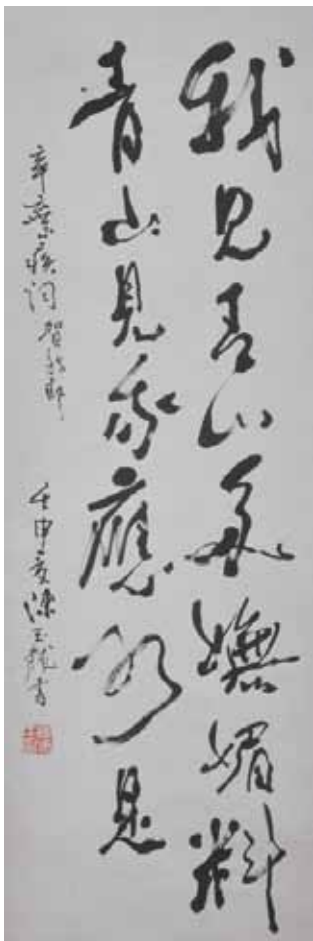 我见青山多嫵媚料
青山見我應如是
辛棄疾词 賀新郎 壬申夏陳玉龍書